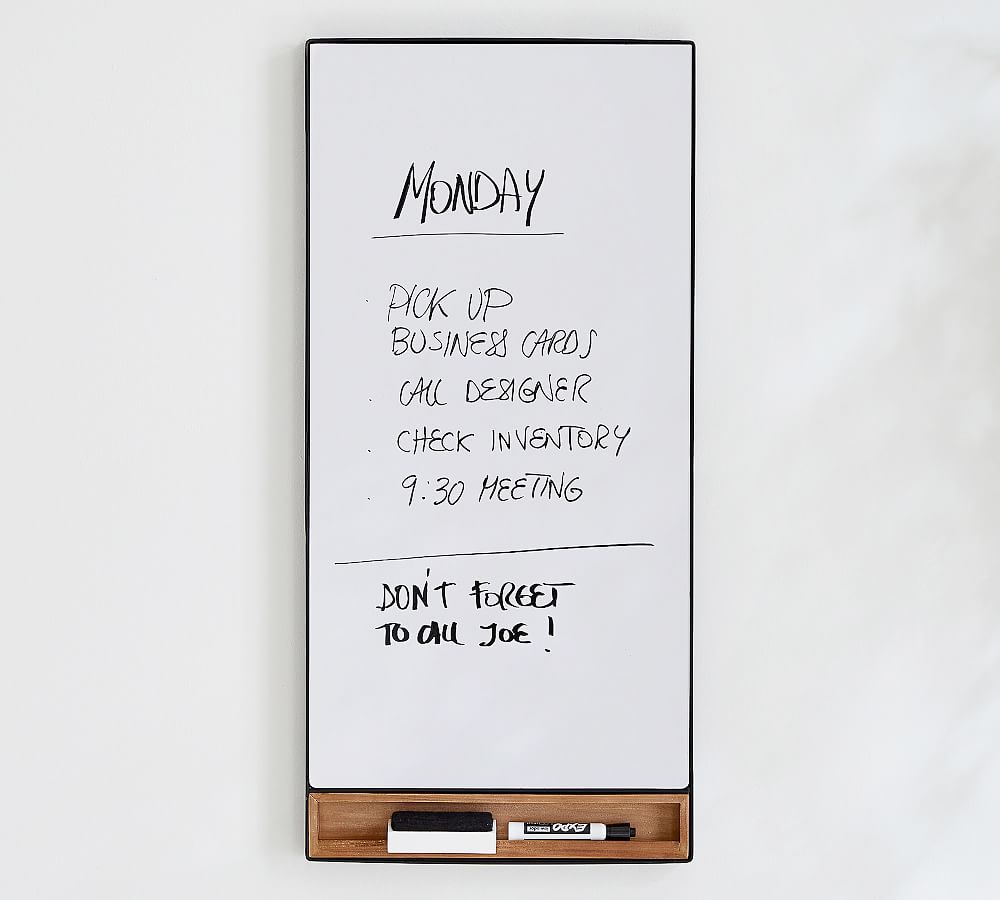 MONDAY
· PICK UP
BUSINESS CARDS
· CALL DESIGNER
· CHECK INVENTORY
· 9:30 MEETING
DON'T FORGET
TO CALL JOE!
EXPO